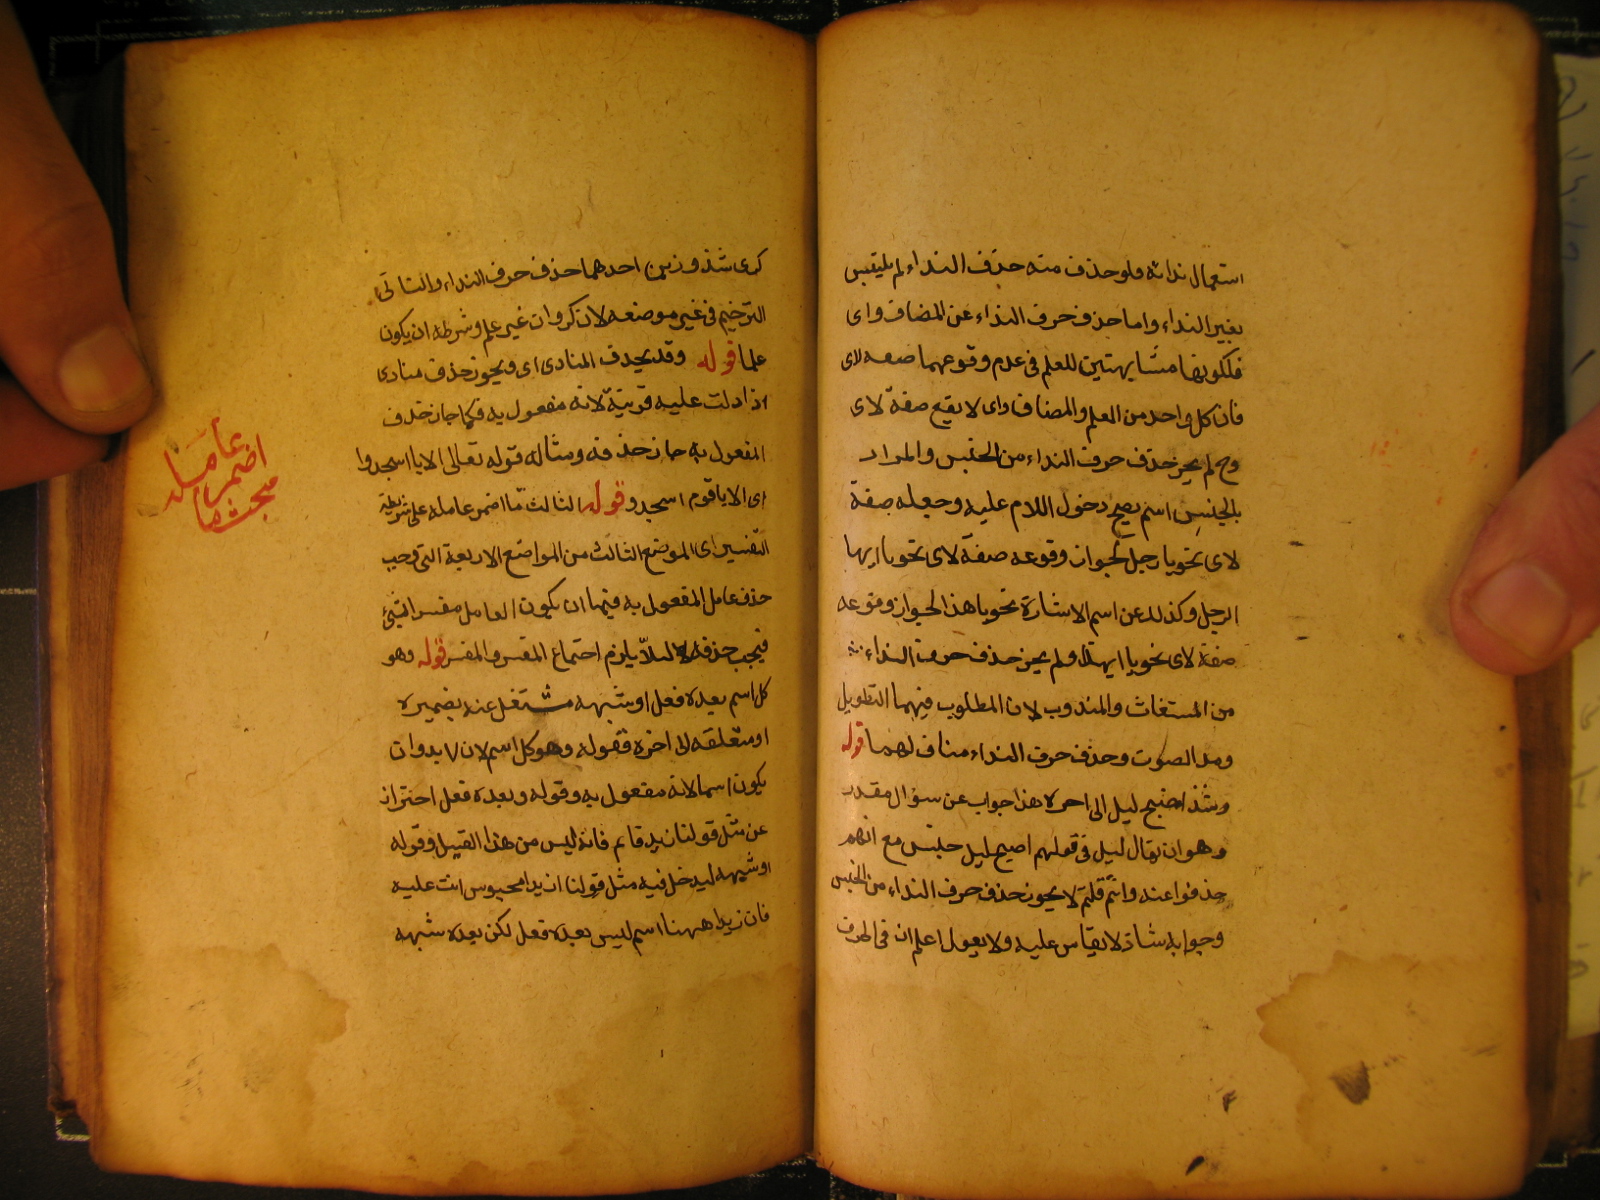 استعمال ندائه فلو حذف منه حذف النداء لم يلتبس
بغير النداء واما حذف حرف النداء عن المضاف واى
فلكونهما مشابهتين للعلم فى عدم وقوعهما صفه لاى
فان كل واحد من العلم والمضاف واى لا يقع صفة لاى
وح لم يجز حذف حرف النداء من الجنس والمراد
بالجنس اسم يصح دخول اللام عليه وجعله صفة
لاى نحو يا رجل لجواز وقوعه صفة لاى نحو يا ايها
الرجل وكذلد عن اسم الاشارة نحو يا هذا لجواز وقوعه
صفة لاى نحو يا ايهذا ولم يجز حذف حرف النداء
من المستغاث والمندوب لان المطلوب فيهما التطويل
ومد الصوت وحذف حرف النداء مناف لهما قوله
وشذ اصبح ليل الى اخره هذا جواب عن سؤال مقدر
وهو ان يقال ليل فى قولهم اصبح ليل جنس مع انهم
حذفوا عنه وانتم قلتم لا يجوز حذف حرف النداء من الجنس
وجوابه شاذ لا يقاس عليه ولا يعول اعلم ان فى اطرق
كرى شذوذين احدهما حذف حرف النداء والثانى
الترخيم فى غير موضعه لان كروان غير علم وشرطه ان يكون
علما قوله وقد يحذف المنادى اى ويجوز حذف منادى
اذا دلت عليه قرينة لانه مفعول به فكما جاز حذف
المفعول به جاز حذفه ومثاله قوله تعالى الا يا اسجدوا
اى الا يا قوم اسجدو قوله الثالث ما اضمر عامله على شريطة
التفسير اى الموضع الثالث من المواضع الاربعة التى وجب
حذف عامل المفعول به فيها ان يكون العامل مفسرا بشئ
فيجب حذفه لئلا يلزم اجتماع المفسر والمفسر قوله وهو
كل اسم بعده فعل او شبهه مشتغل عنه بضميره
او متعلقه الى اخره فقوله وهو كل اسم لان لا بد وان
يكون اسما لانه مفعول به وقوله وبعده فعل احتراز
عن مثل قولنا زيد قائم فانه ليس من هذا القبيل وقوله
او شبهه ليدخل فيه مثل قولنا ازيدا محبوس انت عليه
فان زيدا ههنا اسم ليس بعده فعل لكن بعده شبهه
مبحث ما
اضمر
عامله